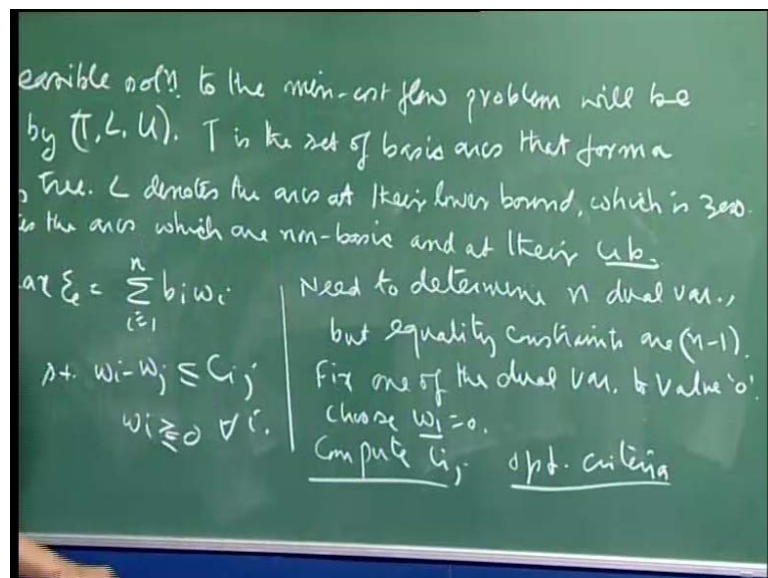 easible soln. to the min-cost flow problem will be
by (T, L, U). T is the set of basic arcs that form a
g tree. L denotes the arcs at their lower bound, which is zero.
es the arcs which are non-basic and at their u b.
ax ξ = Σ_{i=1}^{n} b_i w_i
s.t. w_i - w_j ≤ C_ij
w_i ≷ 0 ∀ i.
Need to determine n dual var.,
but equality constraints are (n-1).
Fix one of the dual var. to value '0'.
choose w_1 = 0.
Compute opt. criteria